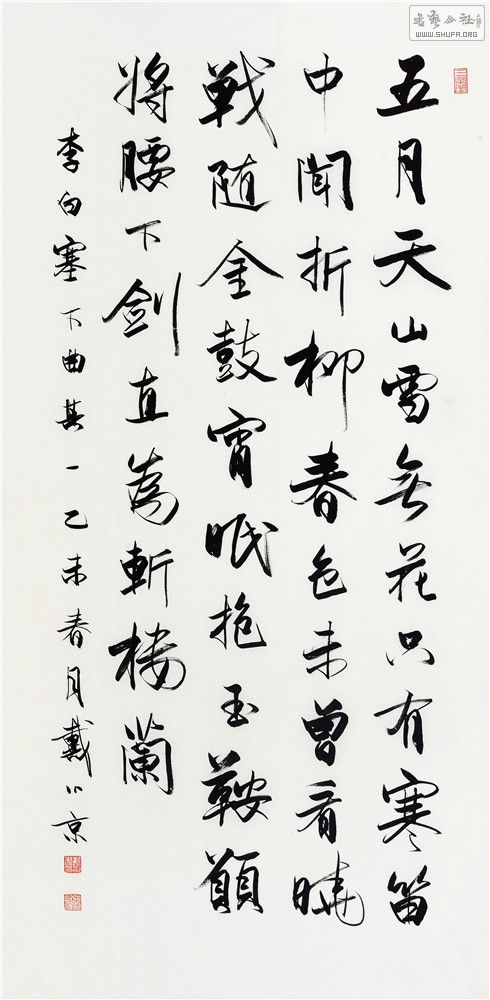 五月天山雪無花只有寒笛
中聞折柳春色未曾看曉
戦随金鼓宵眠抱玉鞍願
將腰下劍直為斬楼蘭
李白塞下曲其一乙未春月戴小京
書藝公社
WWW.SHUFA.ORG